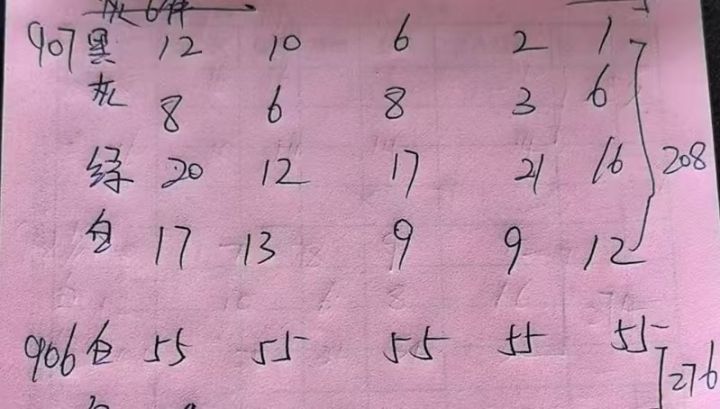 灰6件
907黑 12 10 6 2 1
灰 8 6 8 3 6
绿 20 12 17 21 16 208
白 17 13 9 9 12
906白 55 55 55 55 55
276